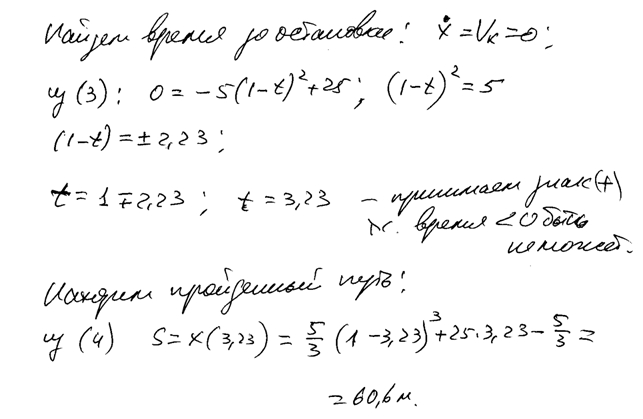 Найдем время до остановки: ẋ = Vк = 0;
из (3): 0 = -5(1-t)² + 25; (1-t)² = 5
(1-t) = ±2,23;
t = 1 ∓ 2,23; t = 3,23 – принимаем знак (+)
т.к. время < 0 быть
не может.
Находим пройденный путь:
из (4) S = x(3,23) = 5/3 (1 - 3,23)³ + 25·3,23 - 5/3 =
= 60,6 м.